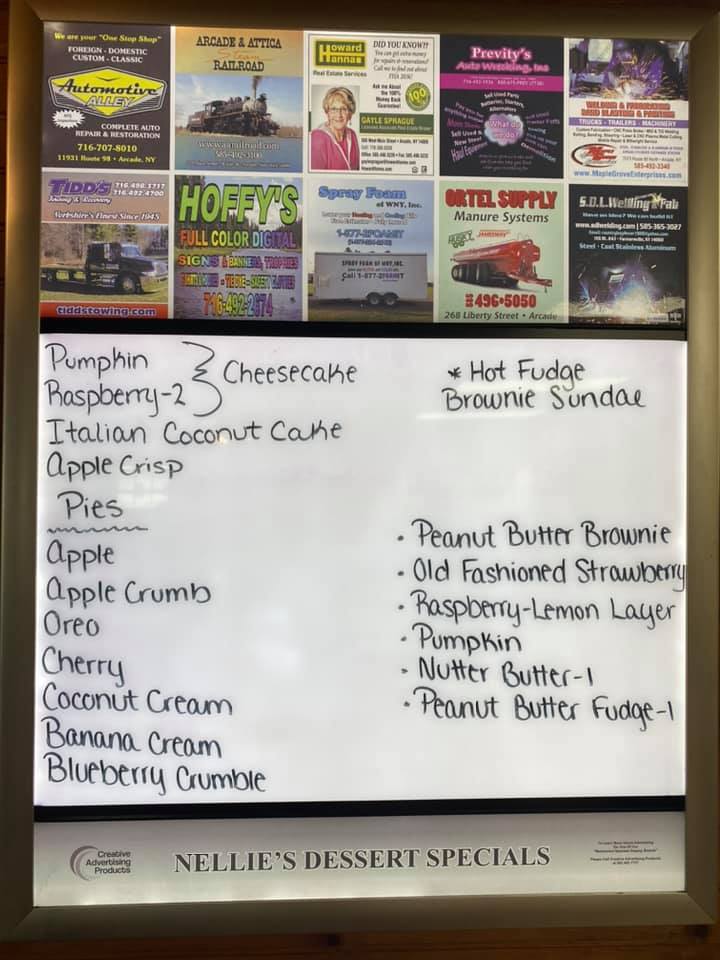 We are your "One Stop Shop"
FOREIGN - DOMESTIC
CUSTOM - CLASSIC
Automotive
ALLEY
COMPLETE AUTO
REPAIR & RESTORATION
716-707-8010
11931 Route 98 • Arcade, NY
ARCADE & ATTICA
Steam
RAILROAD
www.aarailroad.com
585-492-3100
Howard
Hanna
Real Estate Services
DID YOU KNOW??
You can get extra money
for repairs & renovations?
Call me to find out about
FHA 203K!
Ask me About
the 100%
Money Back
Guarantee!
100
GAYLE SPRAGUE
Licensed Associate Real Estate Broker
Previty's
Auto Wrecking, Inc
What do
we do?
WELDING & FABRICATING
TRUCKS - TRAILERS - MACHINERY
585-492-3340
www.MapleGroveEnterprises.com
TIDD'S
Towing & Recovery
716.498.3737
716.492.4700
Yorkshire's Finest Since 1945
tiddstowing.com
HOFFY'S
FULL COLOR DIGITAL
SIGNS & BANNERS, TROPHIES
716-492-2674
Spray Foam
of WNY, Inc.
1-877-2FOAMIT
SPRAY FOAM OF WNY, INC.
Call 1-877-2FOAMIT
ORTEL SUPPLY
Manure Systems
JAMESWAY
496-5050
268 Liberty Street • Arcade
S.D.L. Welding & Fab
Have an Idea? We can build it!
www.sdlwelding.com | 585-365-3027
Steel - Cast Stainless Aluminum
Pumpkin
Raspberry-2
Cheesecake
* Hot Fudge
Brownie Sundae
Italian Coconut Cake
Apple Crisp
Pies
Apple
Apple Crumb
Oreo
Cherry
Coconut Cream
Banana Cream
Blueberry Crumble
• Peanut Butter Brownie
• Old Fashioned Strawberry
• Raspberry-Lemon Layer
• Pumpkin
• Nutter Butter-1
• Peanut Butter Fudge-1
Creative
Advertising
Products
NELLIE'S DESSERT SPECIALS